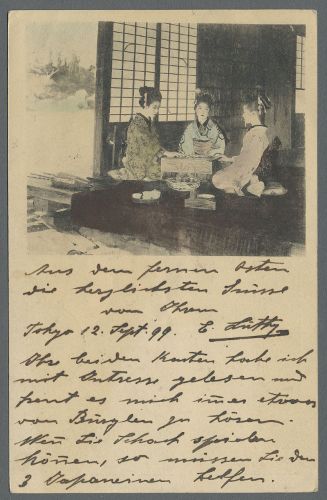 Aus dem fernen Osten
die herzlichsten Grüsse
von Ihrem
Tokyo 12. Sept. 99. E. Lüthy
Ihre beiden Karten habe ich
mit Intresse gelesen und
freut es mich immer etwas
von Bürglen zu hören.
Wenn Sie Schach spielen
können, so müssen Sie den
3 Japaneinen helfen.